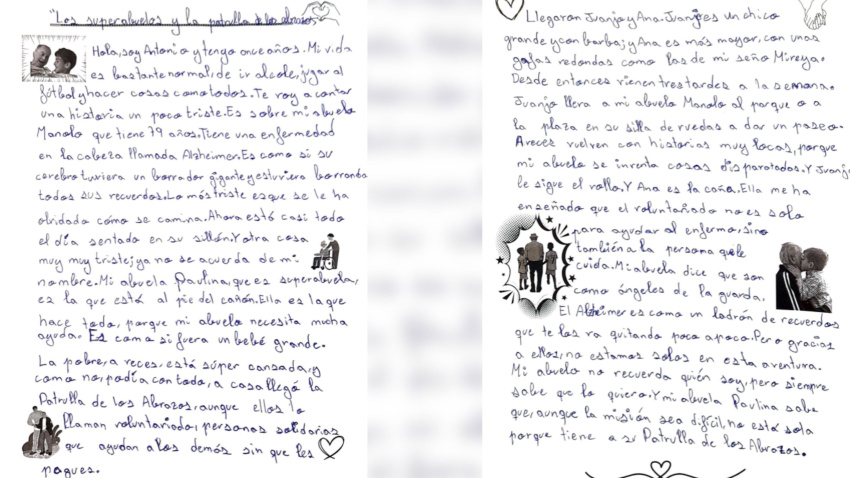 "Los superabuelos y la patrulla de los abrazos"
Hola, soy Antonio y tengo once años. Mi vida
es bastante normal, de ir al cole, jugar al
fútbol y hacer cosas como todos. Te voy a contar
una historia un poco triste. Es sobre mi abuelo
Manolo que tiene 79 años. Tiene una enfermedad
en la cabeza llamada Alzheimer. Es como si su
cerebro tuviera un borrador gigante y estuviera borrando
todos sus recuerdos. Lo más triste es que se le ha
olvidado cómo se camina. Ahora está casi todo
el día sentado en su sillón. Y otra cosa
muy muy triste; ya no se acuerda de mi
nombre. Mi abuela Paulina, que es superabuela,
es la que está al pie del cañón. Ella es la que
hace todo, porque mi abuelo necesita mucha
ayuda. Es como si fuera un bebé grande.
La pobre, a veces, está súper cansada, y
como no, podía con todo, a casa llegó la
Patrulla de los Abrazos, aunque ellos lo
llaman voluntariado, personas solidarias
que ayudan a los demás sin que les
pagues.
Llegaron Juanjo y Ana. Juanjo es un chico
grande y con barba; y Ana es más mayor, con unas
gafas redondas como las de mi seño Mireya.
Desde entonces vienen tres tardes a la semana.
Juanjo lleva a mi abuelo Manolo al parque o a
la plaza en su silla de ruedas a dar un paseo.
A veces vuelven con historias muy locas, porque
mi abuelo se inventa cosas disparatadas. Y Juanjo
le sigue el rollo. Y Ana es la caña. Ella me ha
enseñado que el voluntariado no es solo
para ayudar al enfermo, sino
también a la persona que le
cuida. Mi abuela dice que son
como ángeles de la guarda.
El Alzheimer es como un ladrón de recuerdos
que te los va quitando poco a poco. Pero gracias
a ellos, no estamos solos en esta aventura.
Mi abuelo no recuerda quién soy, pero siempre
sabe que lo quiero. Y mi abuela Paulina sabe
que, aunque la misión sea difícil, no está sola
porque tiene a su Patrulla de los Abrazos.